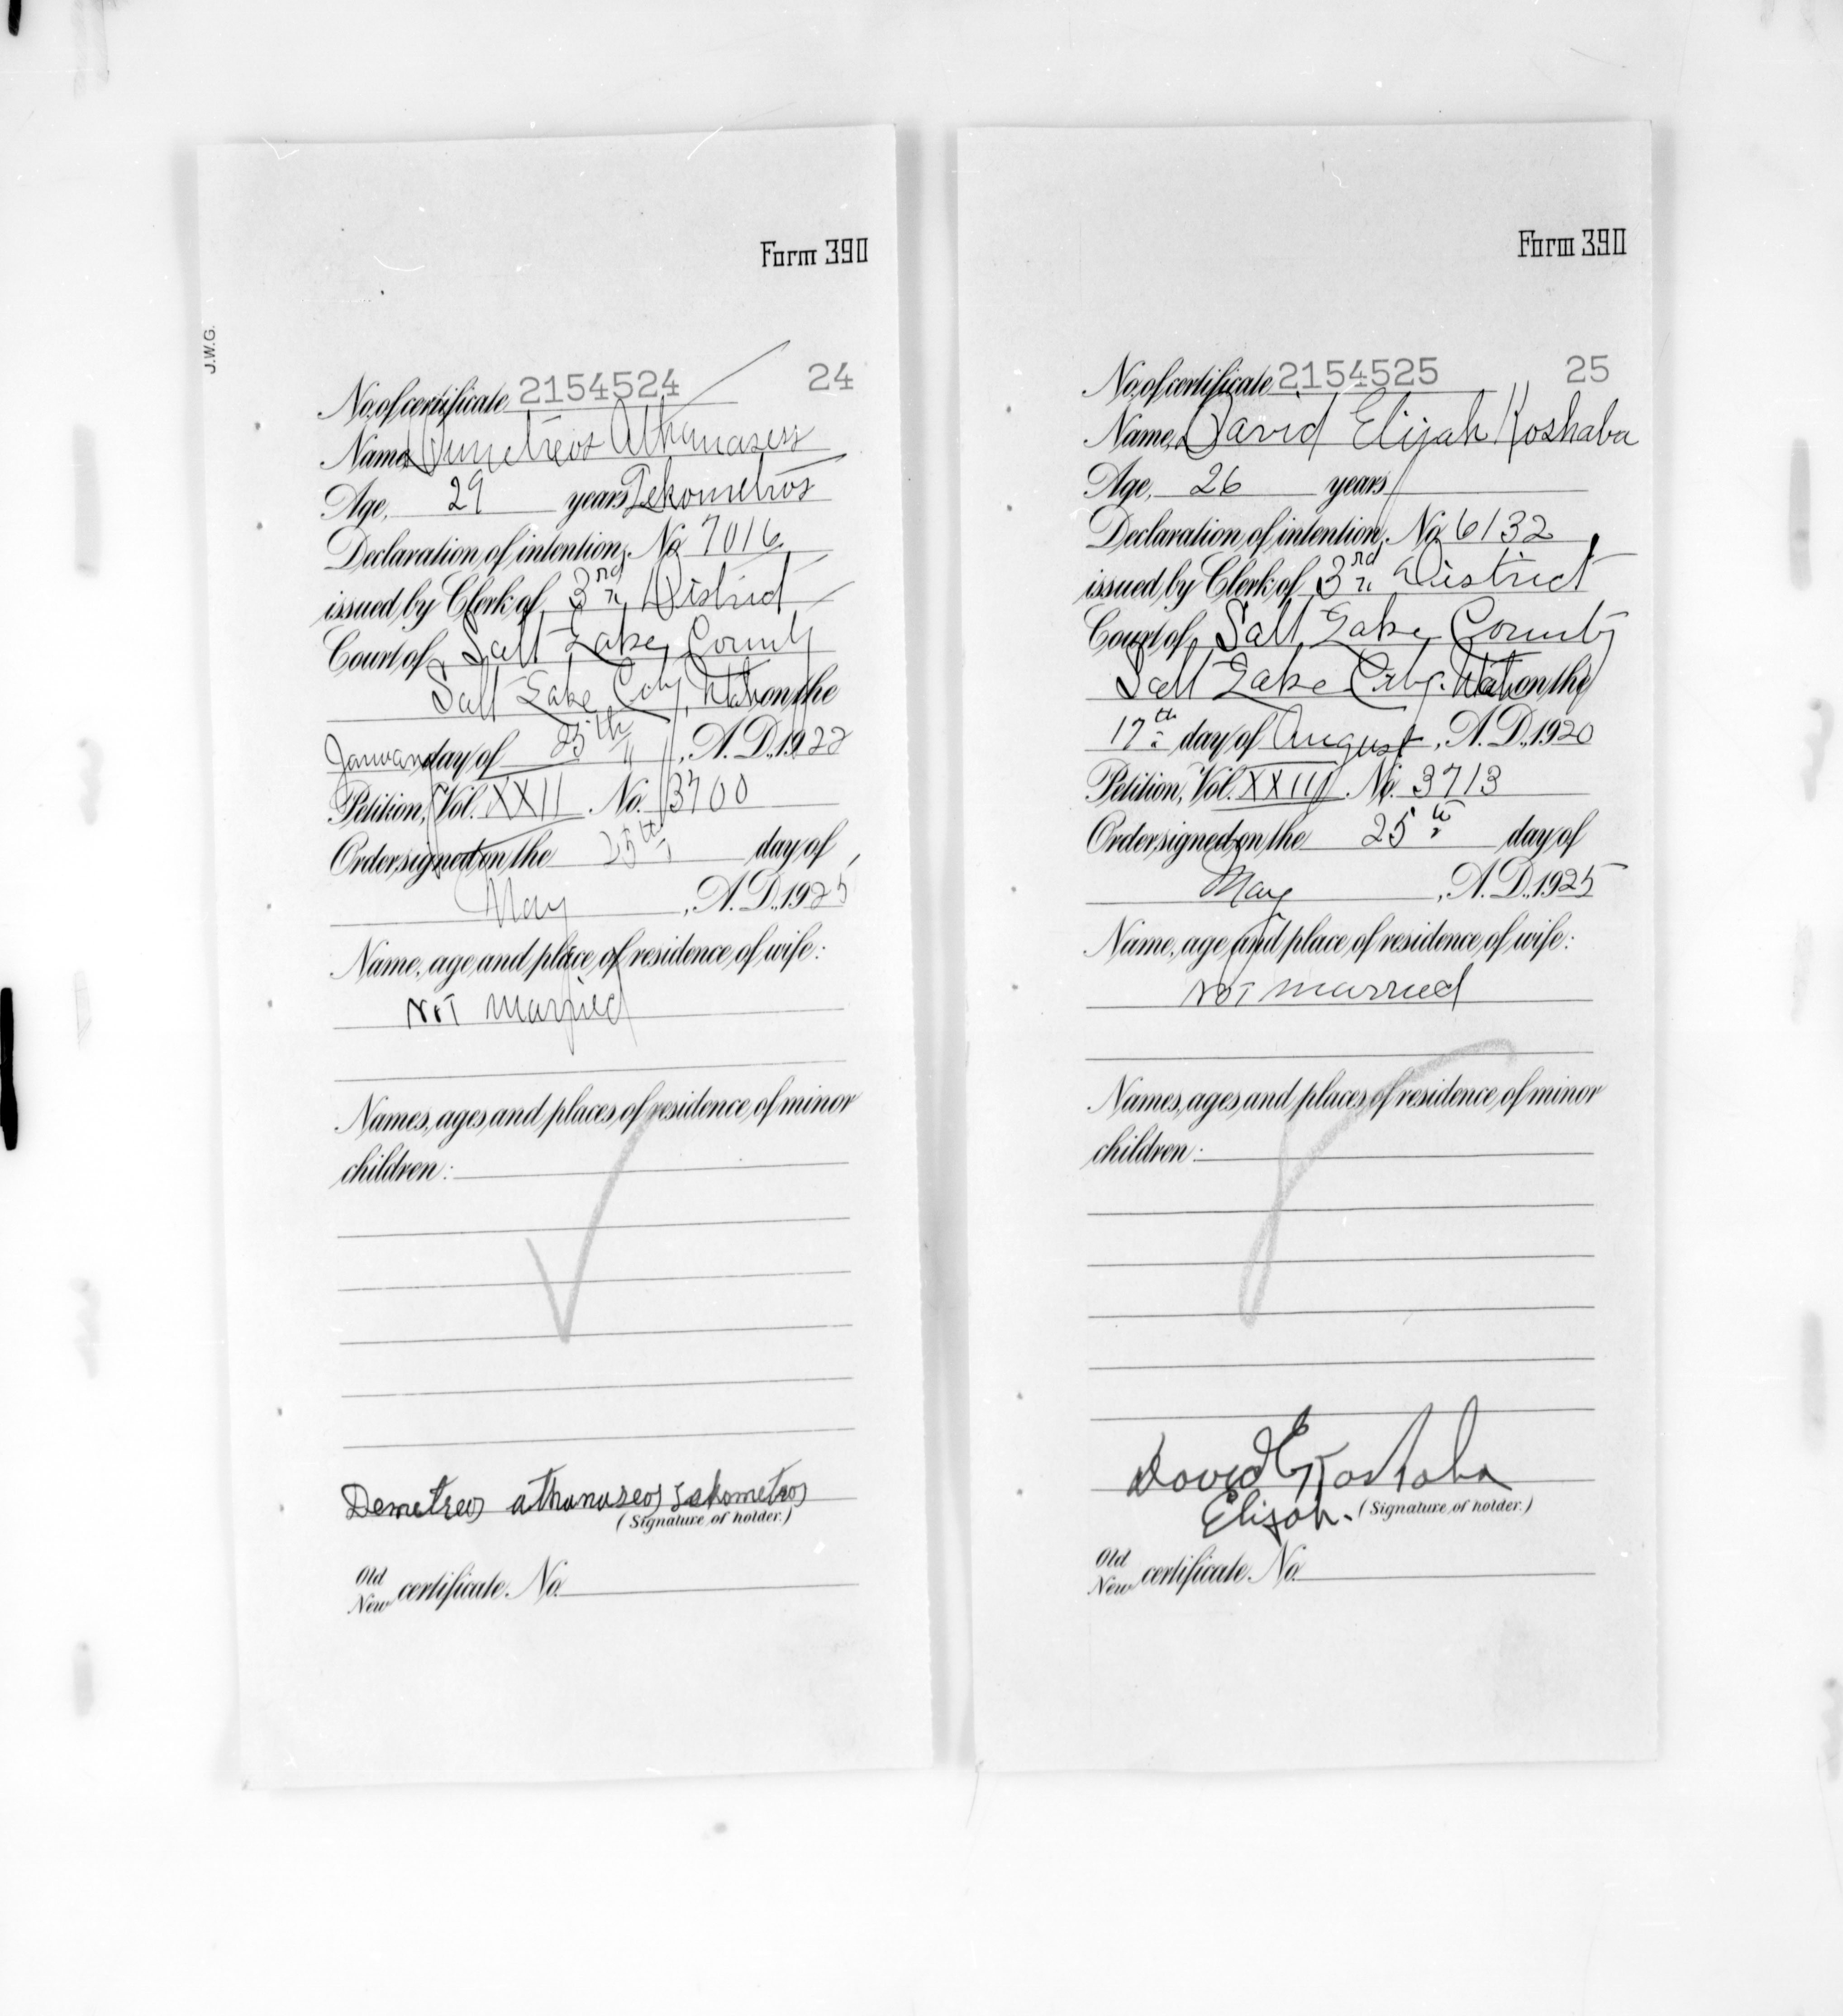 J.W.G.
Form 390
No. of certificate 2154524 24
Name Demetreos Athanaseos
Age, 29 years Tekometros
Declaration of intention, No 7016
issued by Clerk of 3rd District
Court of Salt Lake County
Salt Lake City, Utah on the
January day of 25th, A.D., 1922
Petition, Vol. XXII No. 3700
Order signed on the 25th day of
May, A.D., 1925
Name, age and place of residence of wife:
Not married
Names, ages and places of residence of minor
children:
Demetreos athanaseos
(Signature of holder.)
Old
New certificate No.
Form 390
No. of certificate 2154525 25
Name David Elijah Koshaba
Age, 26 years
Declaration of intention, No 6132
issued by Clerk of 3rd District
Court of Salt Lake County
Salt Lake City. Utah on the
17th day of August, A.D., 1920
Petition, Vol. XXIII No. 3713
Order signed on the 25th day of
May, A.D., 1925
Name, age and place of residence of wife:
Not married
Names, ages and places of residence of minor
children:
David E Koshaba
Elijah. (Signature of holder.)
Old
New certificate No.